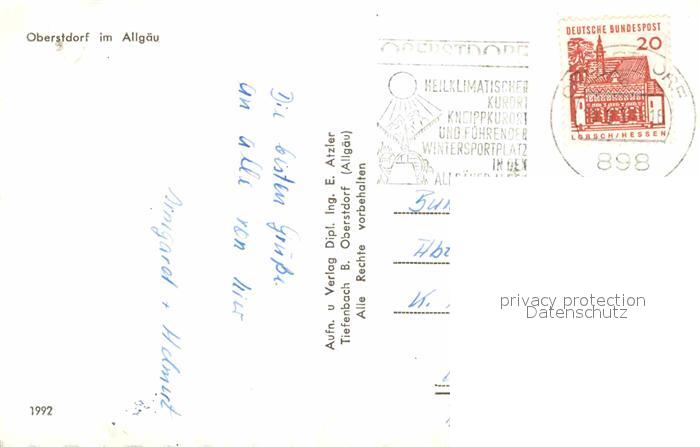 Oberstdorf im Allgäu
Die besten Grüße
an alle von hier
Irmgard + Helmut
1992
Aufn. u Verlag Dipl. Ing. E. Atzler
Tiefenbach B. Oberstdorf (Allgäu)
Alle Rechte vorbehalten
OBERSTDORF
HEILKLIMATISCHER
KURORT
KNEIPPKURORT
UND FÜHRENDER
WINTERSPORTPLATZ
IN DEN
DEUTSCHE BUNDESPOST
20
LORSCH/HESSEN
898
K.
privacy protection
Datenschutz